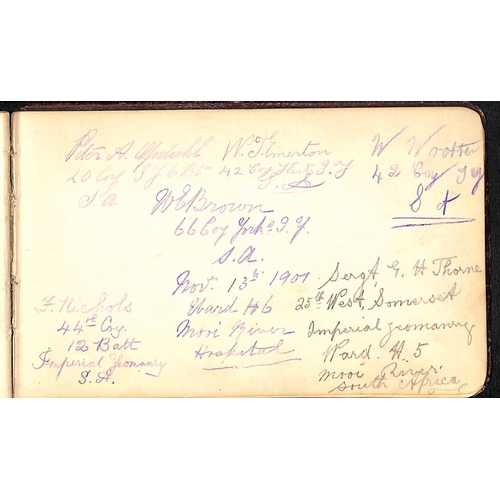 Peter A.
20 Coy I Y 6 Bt
S A
W. T. Emerton
42 Coy Herts I. Y
W Wootten
42 Coy I Y
S A
W E Brown
66 Coy Yorks I. Y.
S. A.
Nov. 13th 1901
Ward H 6
Mooi River
Hospital
F. Nichols
44th Coy.
12 Batt
Imperial Yeomanry
S. A.
Sergt. G. H Thorne
25th West Somerset
Imperial Yeomanry
Ward. H. 5
Mooi River.
South Africa